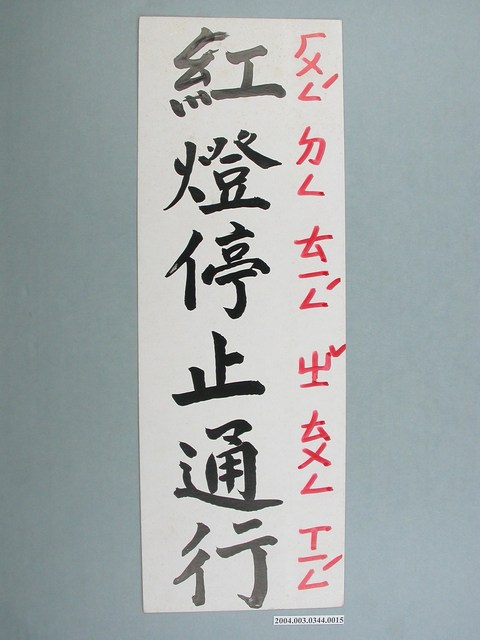 紅燈停止通行
ㄏㄨㄥˊ ㄉㄥ ㄊㄧㄥˊ ㄓˇ ㄊㄨㄥ ㄒㄧㄥˊ
2004.003.0344.0015